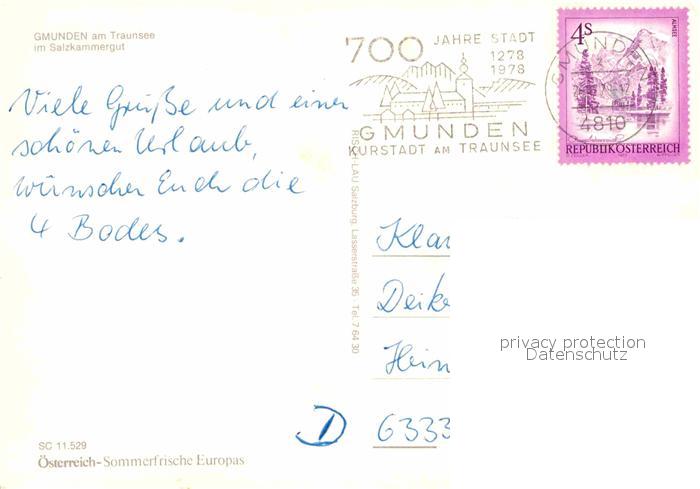 GMUNDEN am Traunsee
im Salzkammergut
Viele Grüße und einen
schönen Urlaub,
wünschen Euch die
4 Bodes.
SC 11.529
Österreich-Sommerfrische Europas
RISCH-LAU Salzburg, Lasserstraße 35 - Tel. 7 64 30
700 JAHRE STADT
1278
1978
GMUNDEN
KURSTADT AM TRAUNSEE
GMUNDEN
4810
4S
ALMSEE
REPUBLIK ÖSTERREICH
Klar
Deike
Hein
D 6333
privacy protection
Datenschutz